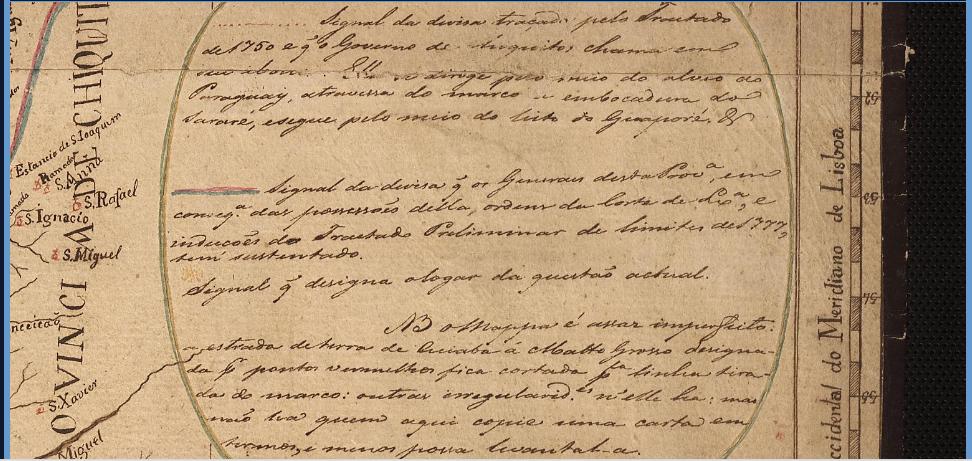 Signal da divisa traçada pelo Tractado
de 1750 e q̃ o Governo de Chiquitos chama em
seu abono. se dirige pelo meio do alveo do
Paraguay, atravessa do marco a embocadura do
Sararé, e segue pelo meio do leito do Guaporé. &
Signal da divisa q̃ os Generaes desta Provª, em
conseqª das possessões della, ordens da Corte de Lxª, e
inducções do Tractado Preliminar de limites de 1777,
tem sustentado.
Signal q̃ designa o logar da questaõ actual.
NB o Mappa é assaz imperfeito:
a estrada de terra de Cuiabá á Matto Grosso designa-
da pr pontos vermelhos fica cortada pla linha tira-
da do marco: outras irregularid.es n'elle ha: mas
naõ ha quem aqui copie uma carta em
termos, e menos possa levantal-a.
Estancio de S. Joaquim
Ramada
S. Anna
S. Rafael
S. Ignacio
S. Miguel
nceicaõ
S. Xavier
Miguel
OVINCI A DE CHIQUIT
ccidental do Meridiano de Lisboa
52
53
54
55